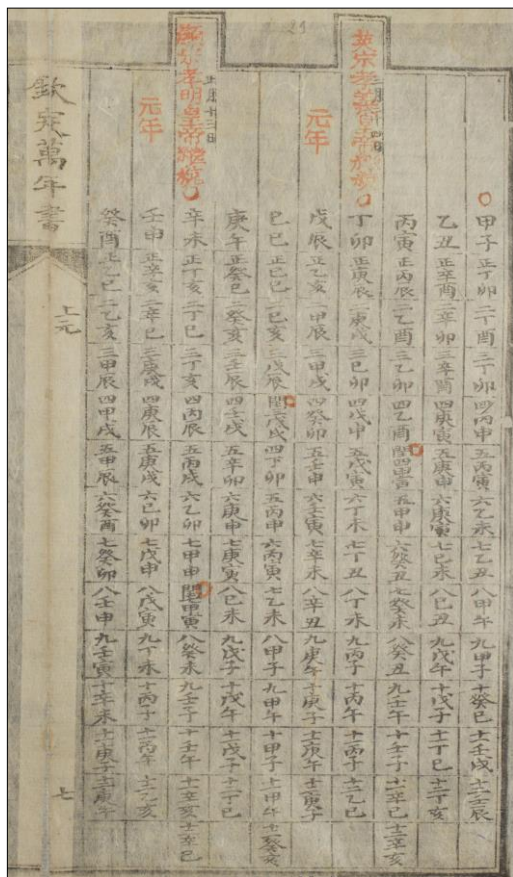 甲子 正丁卯 二丁酉 三丁卯 四丙申 五丙寅 六乙未 七乙丑 八甲午 九甲子 十癸巳 十一壬戌 十二壬辰
乙丑 正辛酉 二辛卯 三辛酉 四庚寅 五庚申 六庚寅 七己未 八己丑 九戊午 十戊子 十一丁巳 十二丁亥
丙寅 正丙辰 二乙酉 三乙卯 四乙酉 閏四甲寅 五甲申 六癸丑 七癸未 八癸丑 九壬午 十壬子 十一辛巳 十二辛亥
英宗 皇帝
丁卯 正庚辰 二庚戌 三己卯 四戊申 五戊寅 六丁未 七丁丑 八丁未 九丙子 十丙午 十一丙子 十二乙巳
元年
戊辰 正乙亥 二甲辰 三甲戌 四癸卯 五壬申 六壬寅 七辛未 八辛丑 九庚午 十庚子 十一庚午 十二庚子
己巳 正己巳 二己亥 三戊辰 閏三戊戌 四丁卯 五丙申 六丙寅 七乙未 八甲子 九甲午 十甲子 十一甲午 十二癸亥
庚午 正癸巳 二癸亥 三壬辰 四壬戌 五辛卯 六庚申 七庚寅 八己未 九戊子 十戊午 十一戊子 十二丁巳
孝明皇帝
辛未 正丁亥 二丁巳 三丁亥 四丙辰 五丙戌 六乙卯 七甲申 閏七甲寅 八癸未 九壬子 十壬午 十一辛亥 十二辛巳
元年
壬申 正辛亥 二辛巳 三庚戌 四庚辰 五庚戌 六己卯 七戊申 八戊寅 九丁未 十丙子 十一丙午 十二乙亥
癸酉 正乙巳 二乙亥 三甲辰 四甲戌 五甲辰 六癸酉 七癸卯 八壬申 九壬寅 十辛未 十一庚子 十二庚午
欽定萬年書
上元
七